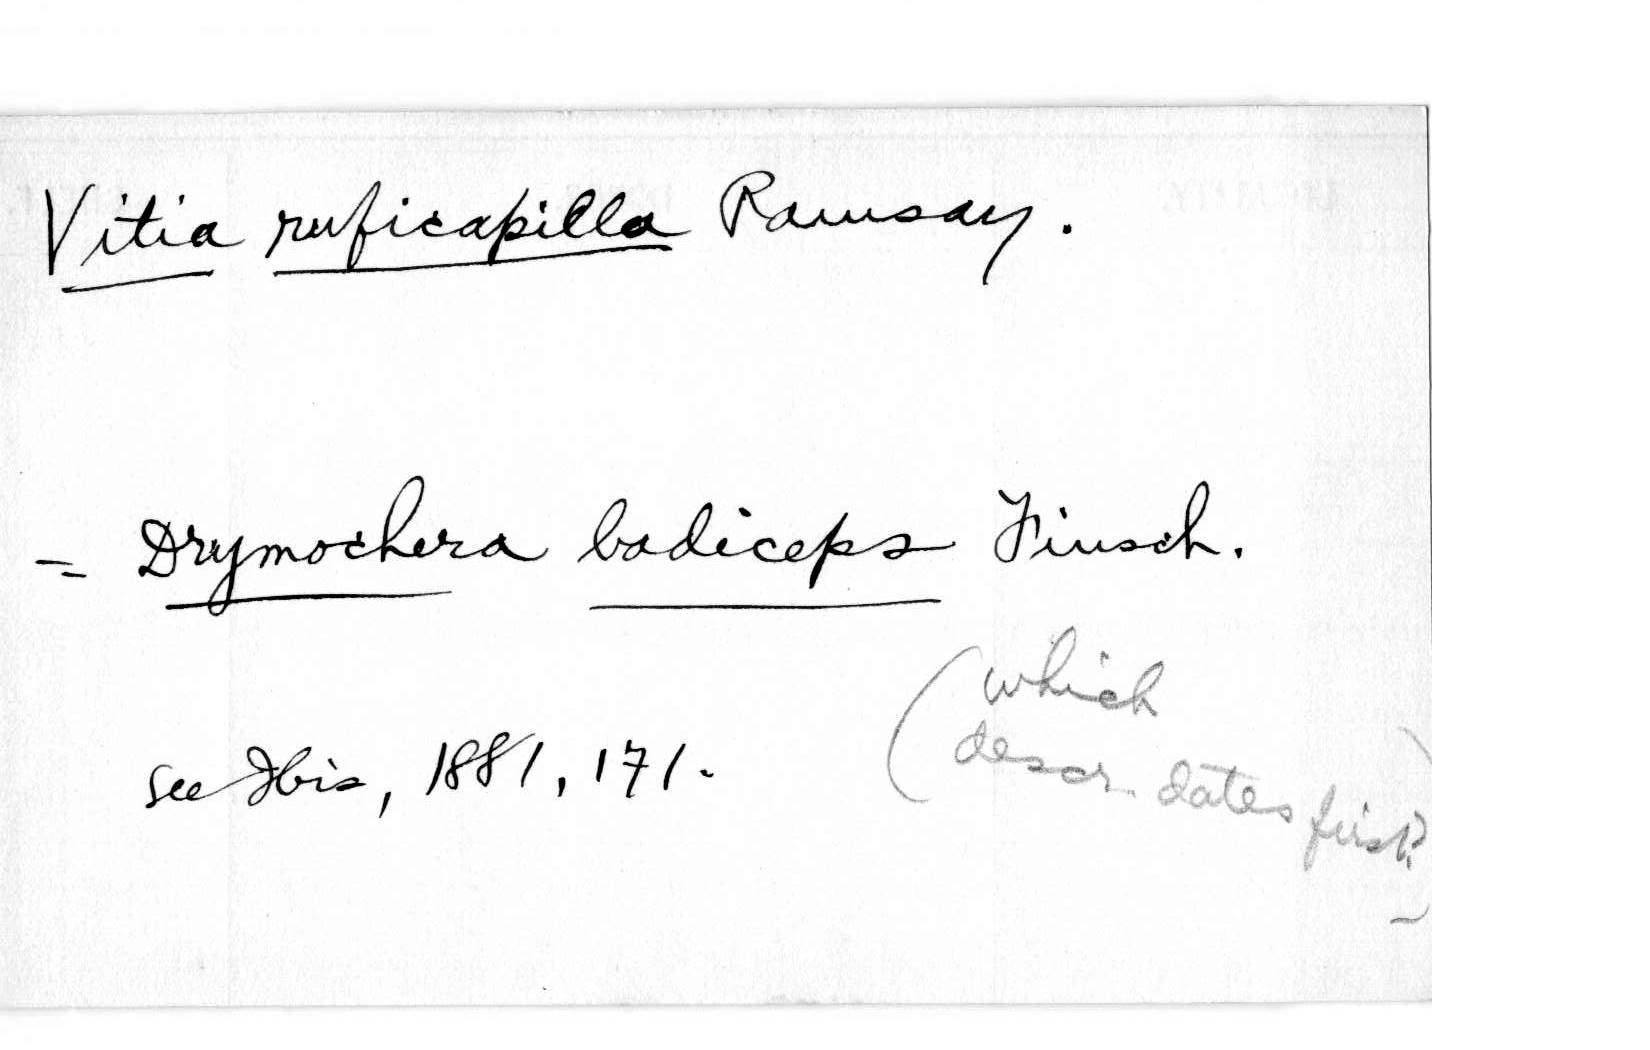 Vitia ruficapilla Ramsay.
= Drymochera badiceps Finsch.
(which
descr. dates first?)
see Ibis, 1881, 171.